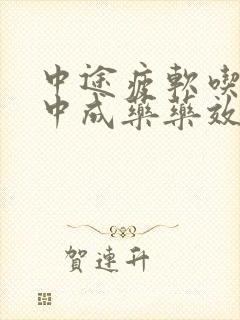 中途疲軟喫
中成藥藥效
賀連升